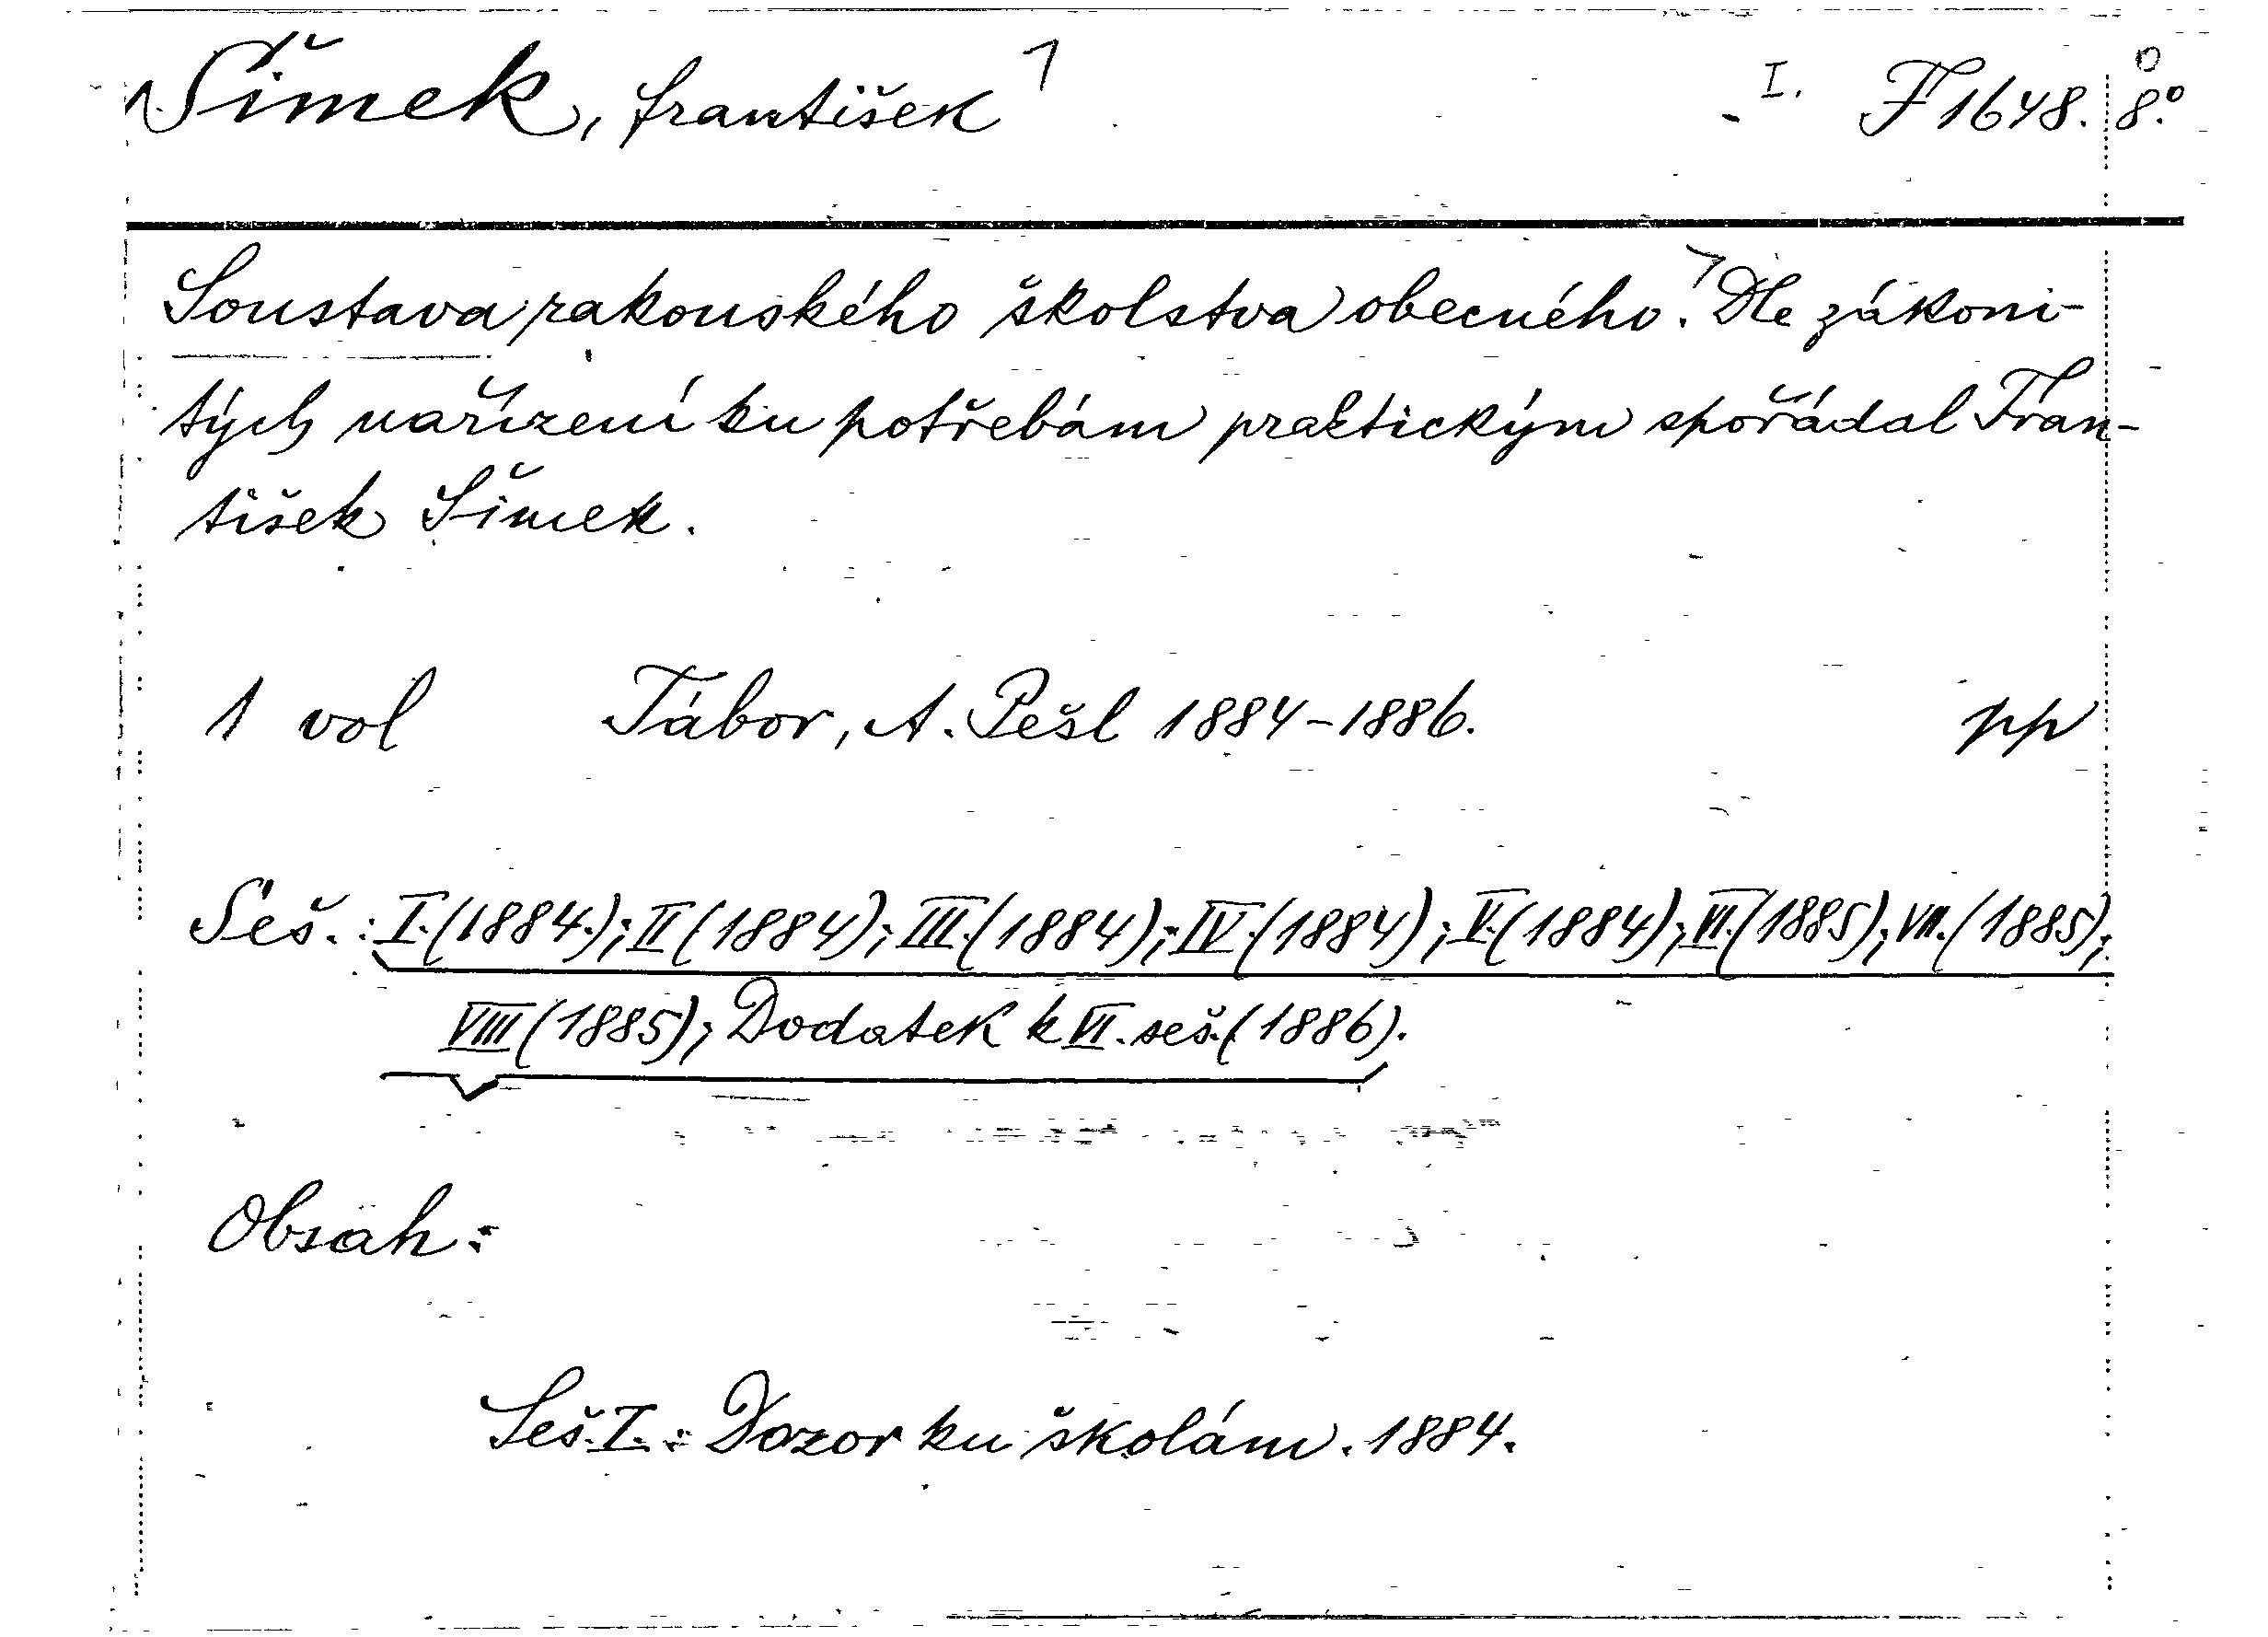 Šimek, František I. F 1648. 8.°
Soustava rakouského školstva obecného. Dle zákoni-
tých nařízení ku potřebám praktickým spořádal Fran-
tišek Šimek.
1 vol Tábor, A. Pešl 1884-1886. pp
Seš.: I. (1884.); II (1884); III. (1884); IV. (1884); V. (1884); VI. (1885); VII. (1885);
VIII (1885); Dodatek k VI. seš. (1886).
Obsah:
Seš. I.: Dozor ku školám. 1884.